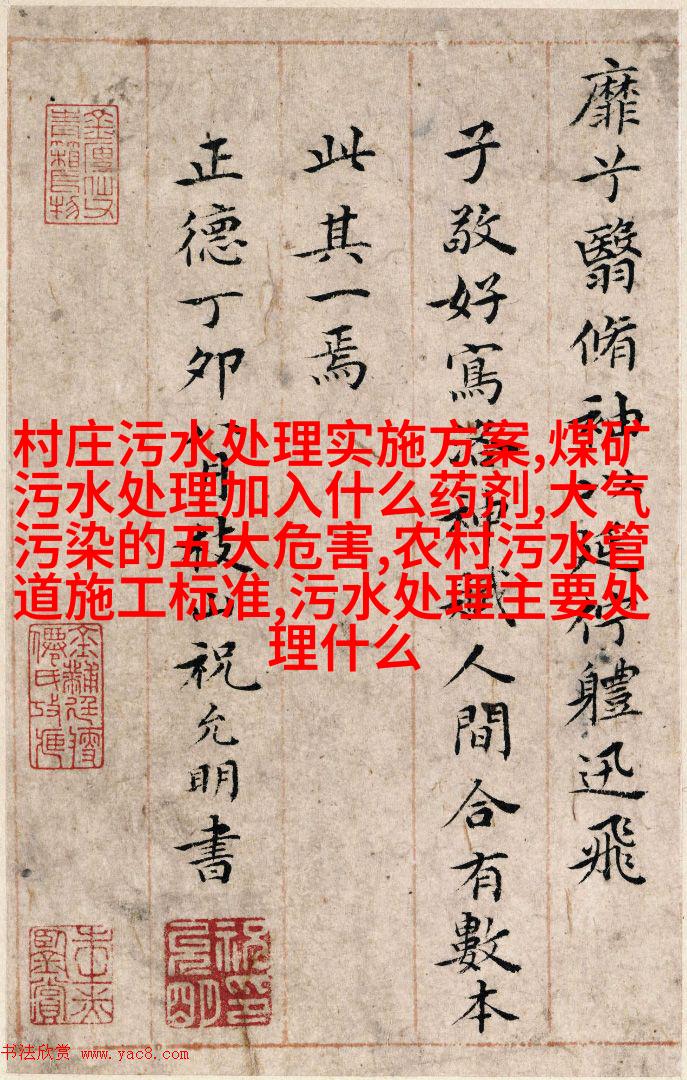 靡兮翳脩袖以延佇體迅飛
子敬好寫洛神賦人間合有數本
此其一焉
正德丁卯八月枝山祝允明書
村庄污水处理实施方案,煤矿
污水处理加入什么药剂,大气
污染的五大危害,农村污水管
道施工标准,污水处理主要处
理什么
书法欣赏 www.yac8.com